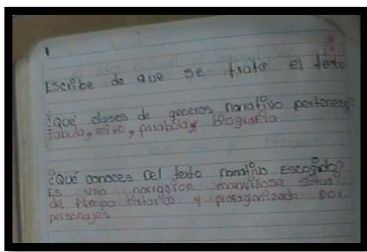 Escribe de que se trata el texto
¿Qué clases de generos narrativo pertenece?
fabula, mito, parabola y biografia
¿Qué conoces Del texto narrativo Escogido?
Es una narración maravillosa
del tiempo historico y protagonizada por
personajes